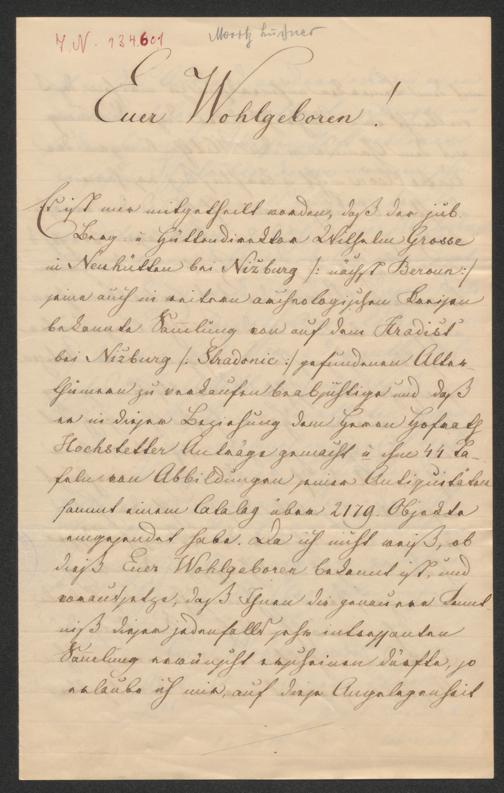 J. N. 134.601
Moritz Lüssner
Euer Wohlgeboren!
Es ist mir mitgetheilt worden, daß der jub.
Berg- u Hüttendirektor Wilhelm Grosse
in Neuhütten bei Nižburg /: nächst Beraun :/
seine auch in weitern archeologischen Kreisen
bekannte Sammlung von auf dem Hradist
bei Nižburg /: Stradonic :/ gefundenen Alter-
thümern zu verkaufen beabsichtige und daß
er in dieser Beziehung dem Herrn Hofrath
Hochstetter Anträge gemacht u ihm 44 Ta-
feln von Abbildungen jener Antiquitäten
sammt einem Catalog über 2179 Objekte
eingesendet habe. Da ich nicht weiß, ob
dieß Euer Wohlgeboren bekannt ist, und
voraussetze, daß Ihnen die genauere Kennt
niß dieser jedenfalls sehr interessanten
Sammlung erwünscht erscheinen dürfte, so
erlaube ich mir, auf diese Angelegenheit